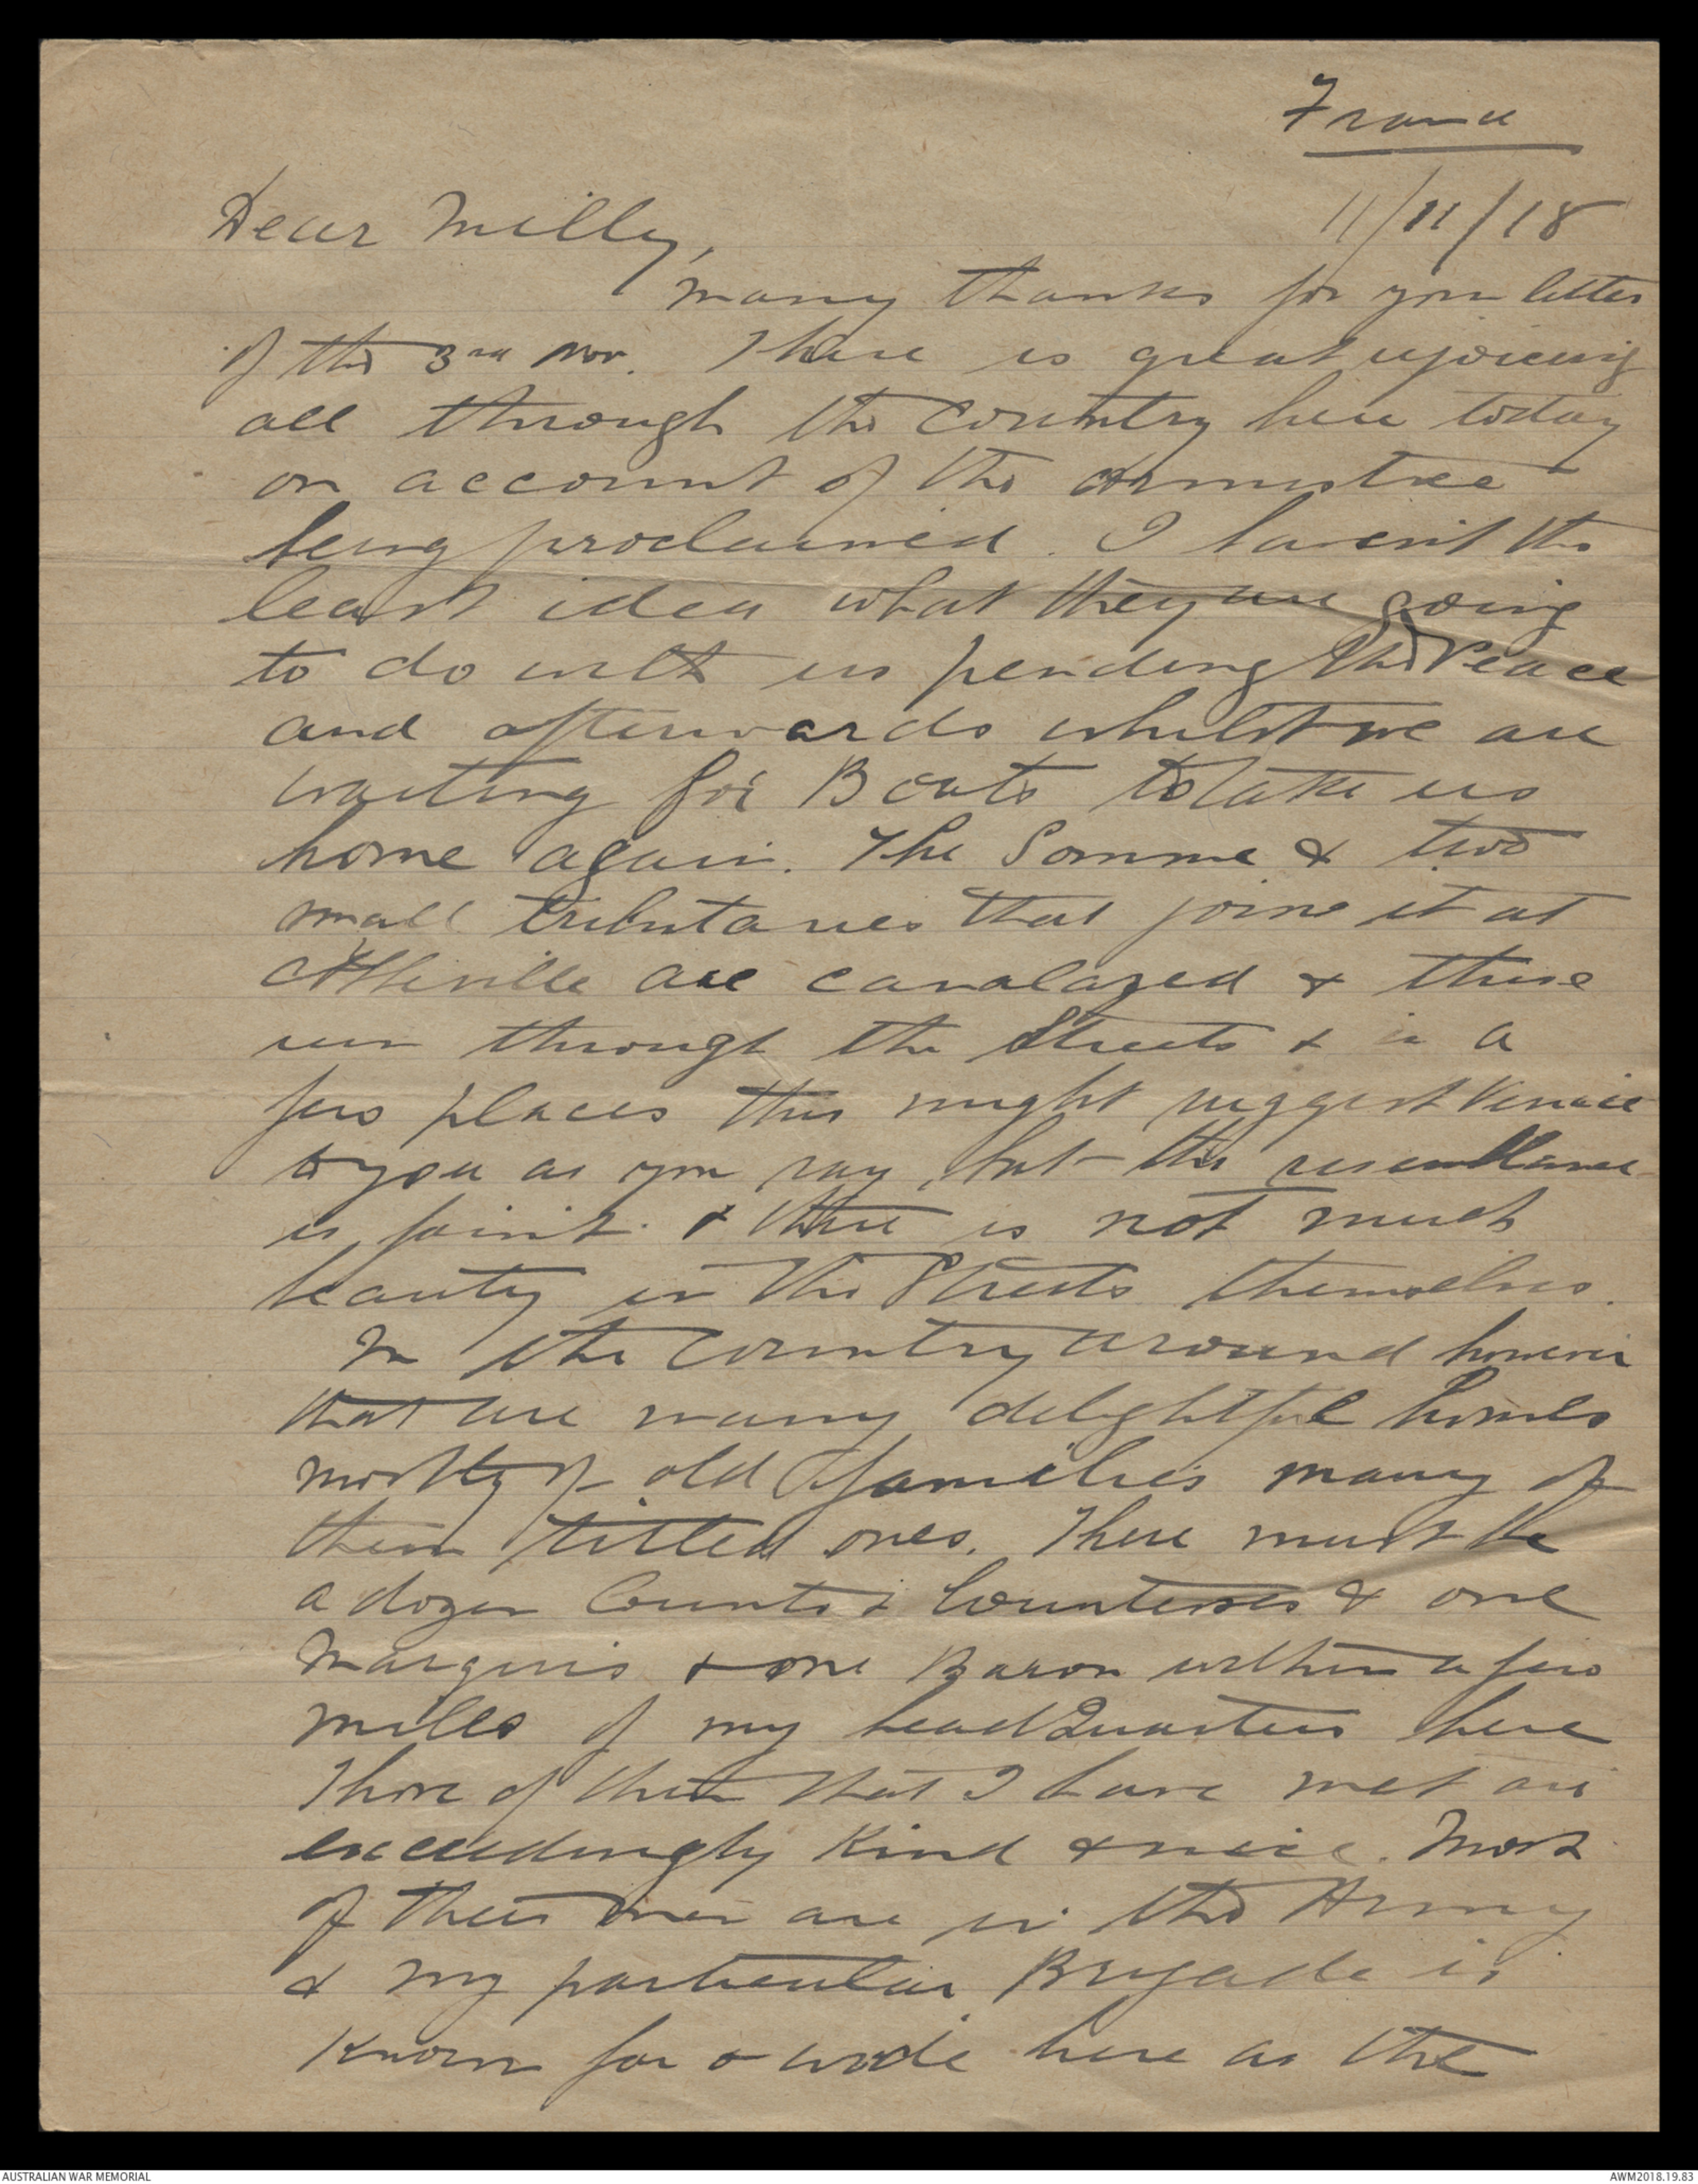 France
11/11/18
Dear Milly,
Many thanks for your letter
of the 3rd Nov. There is great rejoicing
all through the country here today
on account of the Armistice
being proclaimed. I haven't the
least idea what they are going
to do with us pending the Peace
and afterwards whilst we are
waiting for Boats to take us
home again. The Somme & two
small tributaries that joins it at
Abbeville are canalazed & these
run through the Streets & in a
few places this might suggest Venice
to you as you say, but the resemblance
is faint & there is not much
beauty in the Streets themselves.
In the Country around however
that are many delightful homes
mostly of old families many of
them titled ones. There must be
a dozen Counts & Countesses & one
Marquis & one Baron within a few
miles of my headQuarters here
Those of them that I have met are
exceedingly kind & nice. Most
of their men are in the Army
& my particular Brigade is
known far & wide here as the
AUSTRALIAN WAR MEMORIAL
AWM2018.19.83